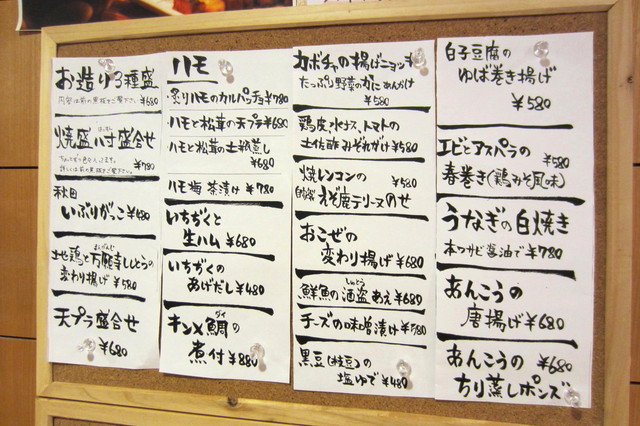 お造り3種盛
内容は前の黒板をご覧下さい ¥680
焼盛 八寸盛合せ
はっすん
¥780
秋田
いぶりがっこ ¥480
まんがんじ
地鶏と万願寺しとうの
変わり揚げ ¥580
天プラ盛合せ
¥680
ハモ
・炙りハモのカルパッチョ ¥780
・ハモと松茸の天プラ ¥680
・ハモと松茸の土瓶蒸し
¥680
ハモ梅茶漬け ¥780
いちぢくと
生ハム ¥680
いちぢくの
あげだし ¥480
ダイ
キンメ鯛の
煮付 ¥880
カボチャの揚げニョッキ
たっぷり野菜のカニあんかけ
¥580
鶏皮、水ナス、トマトの
土佐酢みぞれがけ ¥580
焼レンコンの ¥580
自家製 えぞ鹿テリーヌのせ
おこぜの
変わり揚げ ¥680
しゅとう
鮮魚の酒盗あえ ¥680
チーズの味噌漬け ¥580
黒豆(枝豆)の
塩ゆで ¥480
白子豆腐の
ゆば巻き揚げ
¥580
エビとアスパラの ¥580
春巻き(鶏みそ風味)
うなぎの白焼き
本ワサビ醤油で ¥780
あんこうの
唐揚げ ¥680
あんこうの ¥680
ちり蒸しポンズ